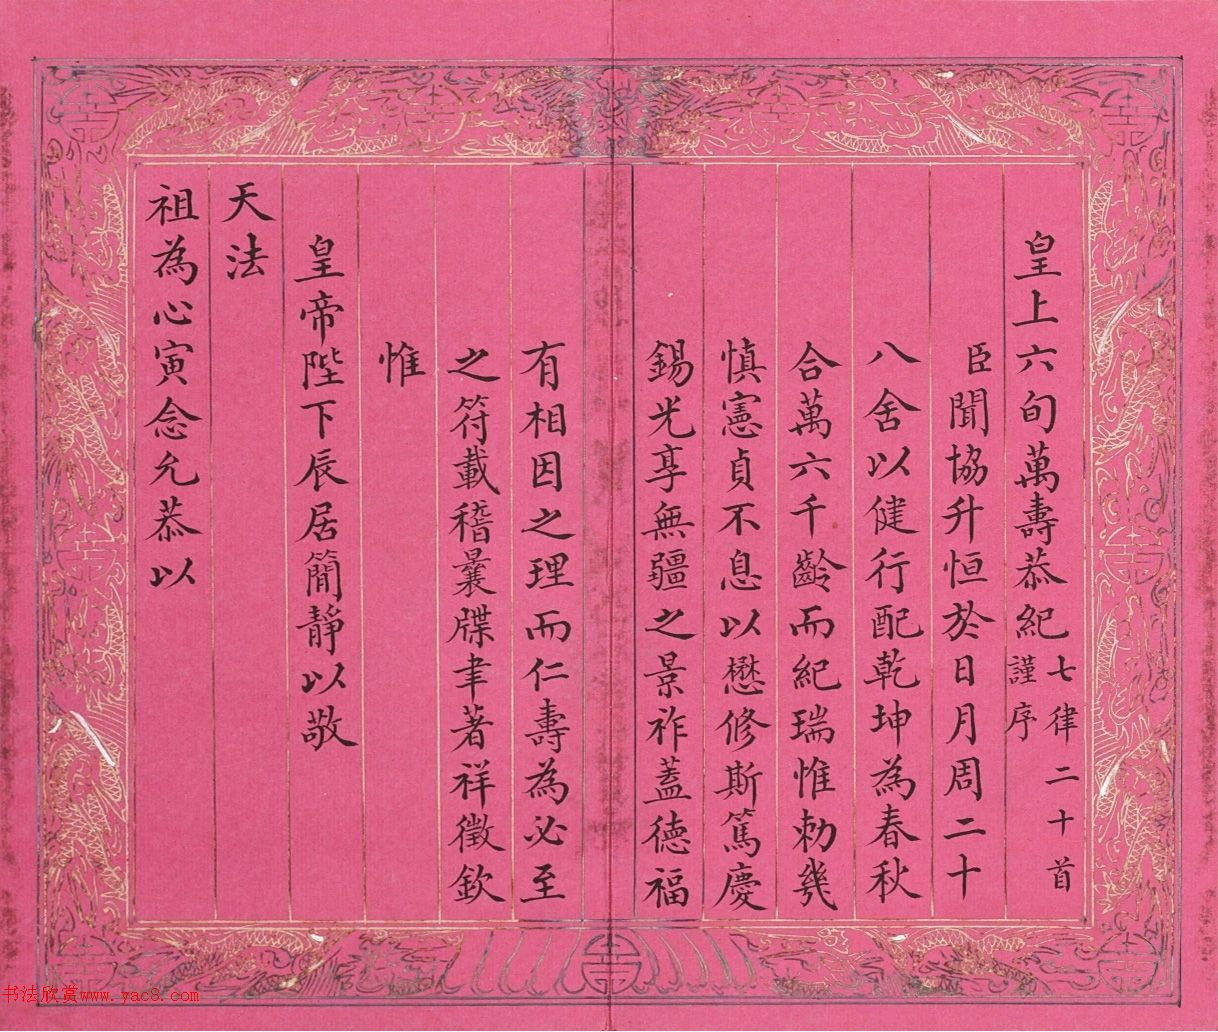 皇上六旬萬壽恭紀七律二十首
謹序
臣聞協升恒於日月周二十
八舍以健行配乾坤為春秋
合萬六千齡而紀瑞惟勅幾
慎憲貞不息以懋修斯篤慶
錫光享無疆之景祚蓋德福
有相因之理而仁壽為必至
之符載稽曩牒聿著祥徵欽
惟
皇帝陛下辰居簡靜以敬
天法
祖為心寅念允恭以
书法欣赏www.yac8.com